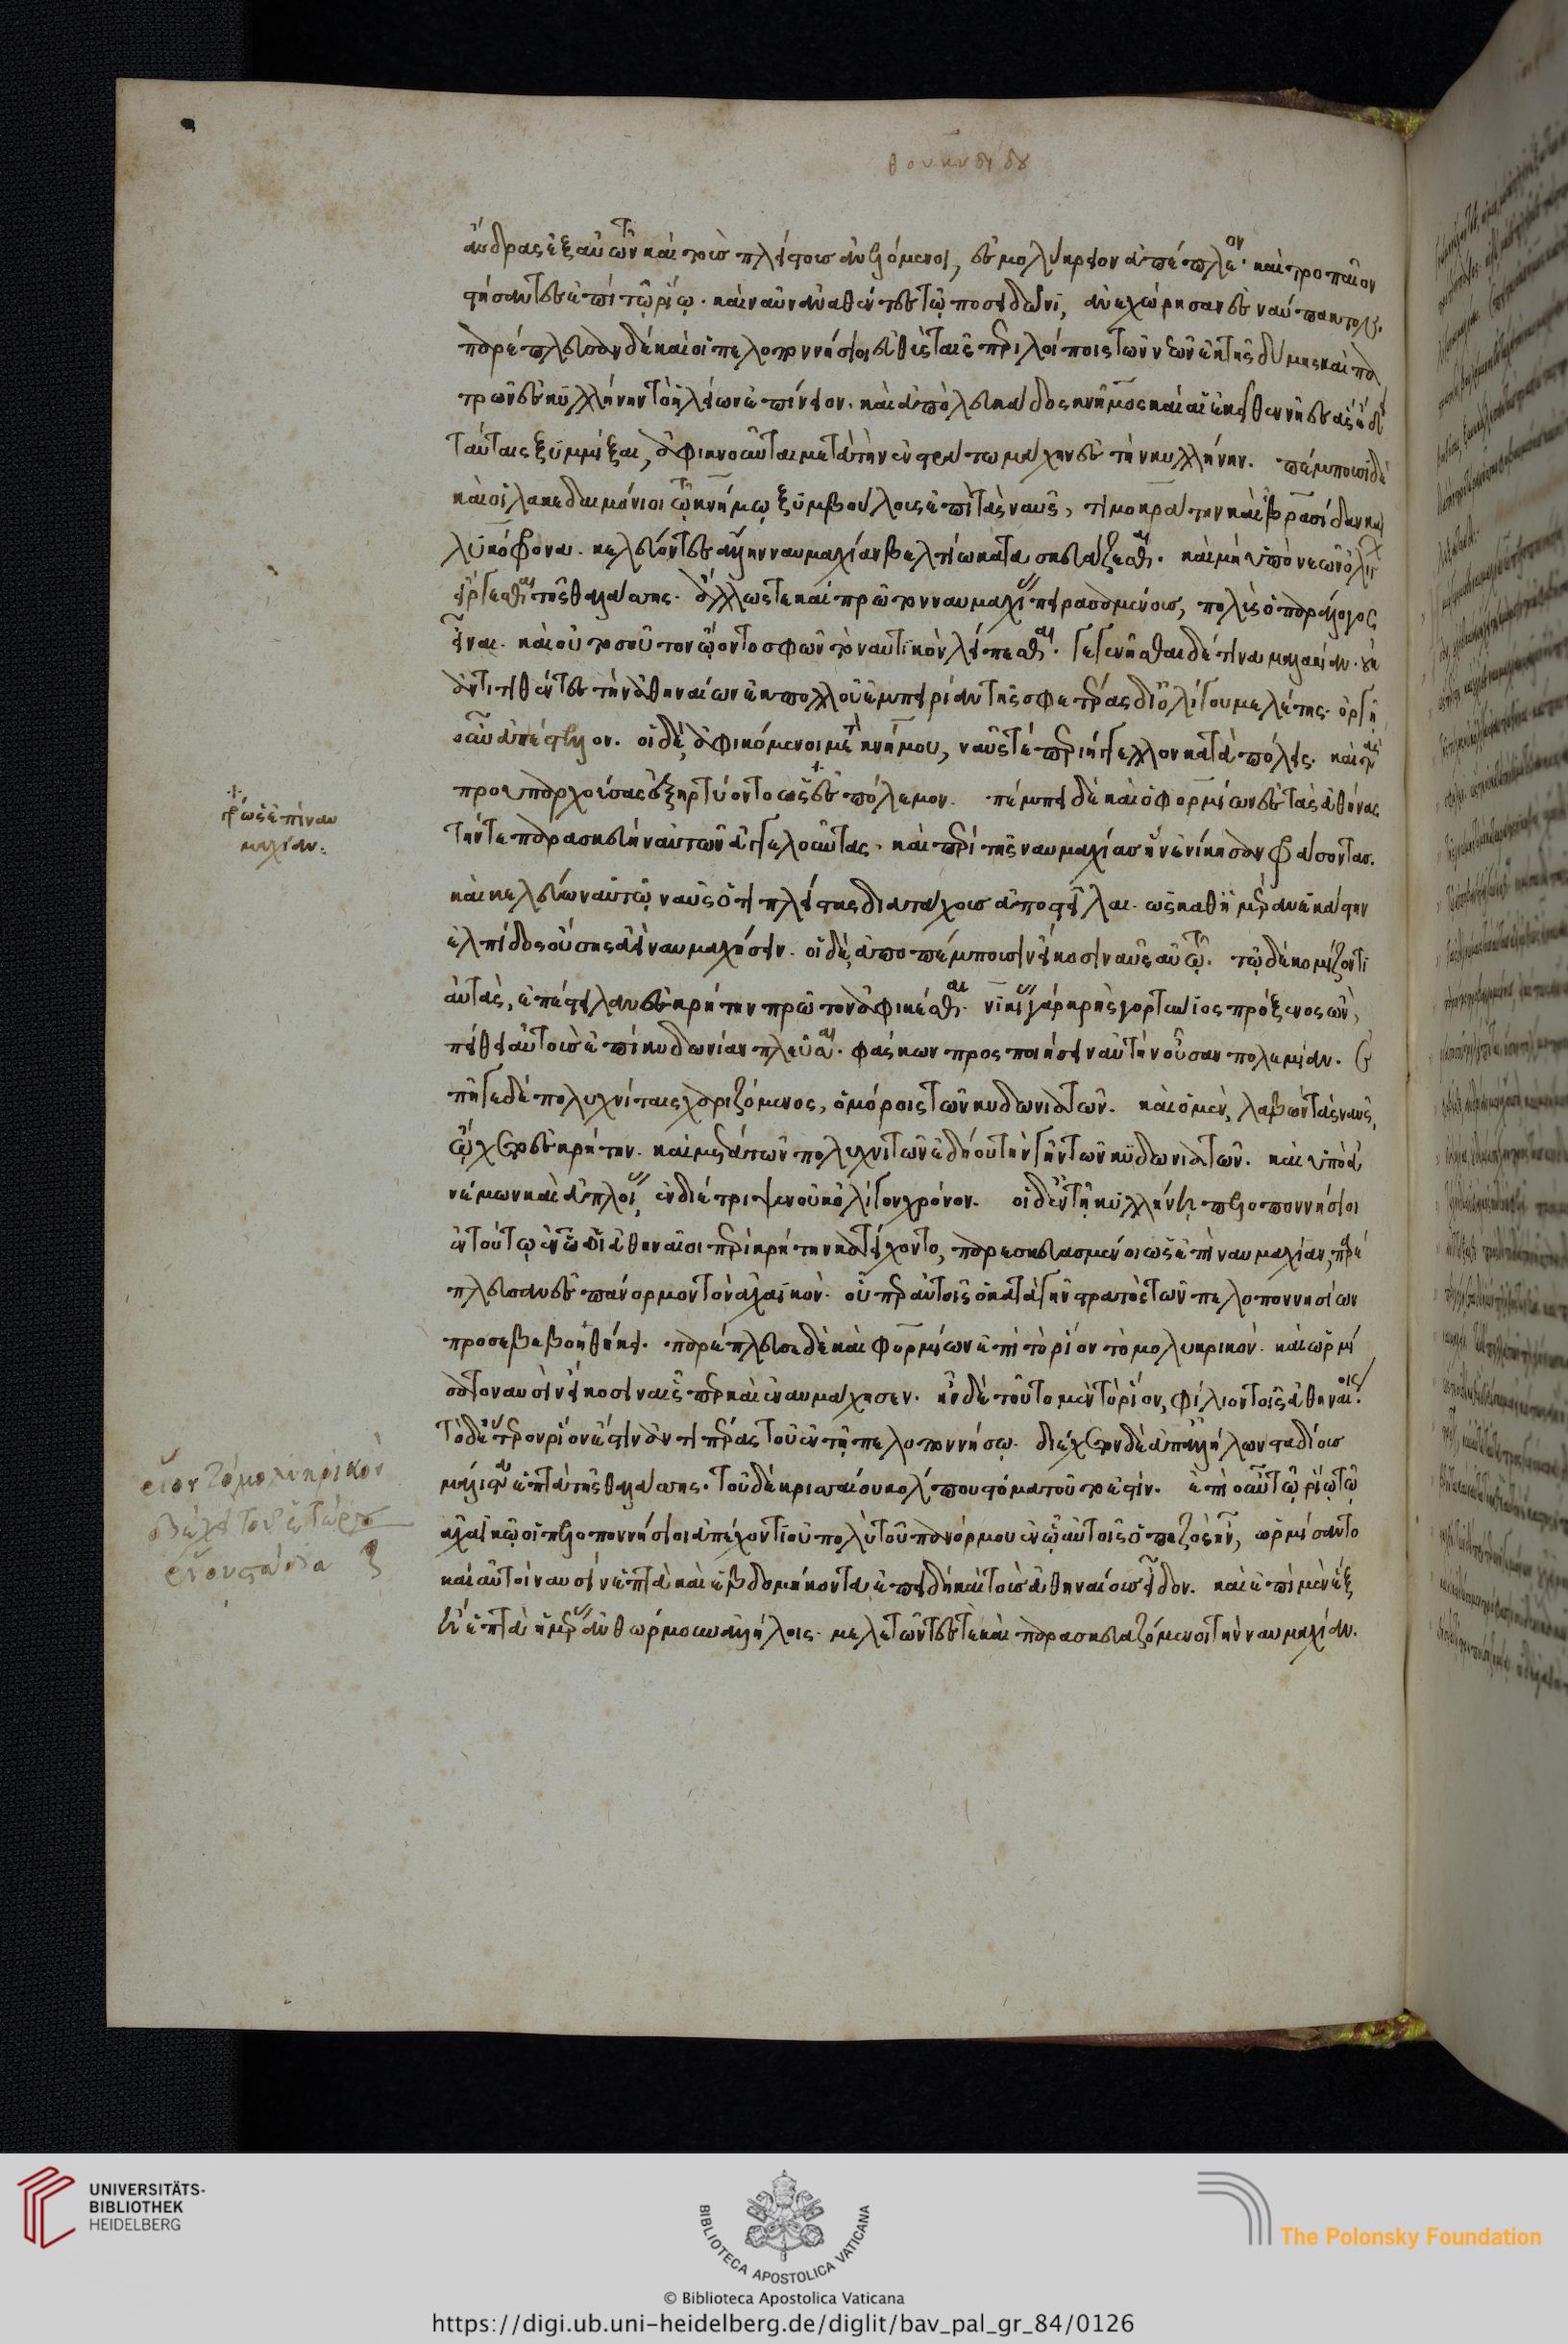 θουκυδίδου
ἄνδρας ἐξ αὐτῶν καὶ τοὺς πλείστους ἀνελόμενοι, ἐς μολύκρειον ἀπέπλεον· καὶ τροπαῖον
στήσαντες ἐπὶ τῷ ῥίῳ. καὶ ναῦν ἀναθέντες τῷ ποσειδῶνι, ἀνεχώρησαν ἐς ναύπακτον.
παρέπλευσαν δὲ καὶ οἱ πελοποννήσιοι εὐθὺς ταῖς περιλοίποις τῶν νεῶν ἐκ τῆς δύμης καὶ πα
τρῶν ἐς κυλλήνην τὸ ἠλείων ἐπίνειον. καὶ ἀπὸ λευκάδος κνῆμος καὶ αἱ ἐκεῖθεν νῆες ἃς ἔδει
ταύταις ξυμμῖξαι, ἀφικνοῦνται μετὰ τὴν ἐν στράτῳ μάχην ἐς τὴν κυλλήνην. πέμπουσι δὲ
καὶ οἱ λακεδαιμόνιοι τῷ κνήμῳ ξυμβούλους ἐπὶ τὰς ναῦς, τιμοκράτην καὶ βρασίδαν καὶ
λυκόφρονα. κελεύοντες ἄλλην ναυμαχίαν βελτίω κατασκευάζεσθαι. καὶ μὴ ὑπὸ νεῶν ὀλίγ
εἴργεσθαι τῆς θαλάσσης. ἄλλως τε καὶ πρῶτον ναυμαχίας πειρασαμένοις, πολὺς ὁ παράλογος
εἶναι. καὶ οὐ τοσοῦτον ᾤοντο σφῶν τὸ ναυτικὸν λείπεσθαι. γεγενῆσθαι δέ τινα μαλακίαν. οὐκ
ἀντιτιθέντες τὴν ἀθηναίων ἐκ πολλοῦ ἐμπειρίαν τῆς σφετέρας δι' ὀλίγου μελέτης. ὀργῇ
οὖν ἀπέστελλον. οἱ δὲ, ἀφικόμενοι μετὰ κνήμου, ναῦς τε περιήγγελλον κατὰ πόλεις. καὶ τὰς
προϋπαρχούσας ἐξηρτύοντο ὡς ἐς πόλεμον. πέμπει δὲ καὶ ὁ φορμίων ἐς τὰς ἀθήνας
τήν τε παρασκευὴν αὐτῶν ἀγγελοῦντας. καὶ περὶ τῆς ναυμαχίας ἣν ἐνίκησαν φράσοντας.
καὶ κελεύων αὐτῷ ναῦς ὅτι πλείστας διατάχους ἀποστεῖλαι. ὡς καθημέραν ἑκάστην
ἐλπίδος οὔσης ἀεὶ ναυμαχήσειν. οἱ δὲ, ἀποπέμπουσιν εἴκοσι ναῦς αὐτῷ. τῷ δὲ κομίζοντι
αὐτὰς, ἐπέστειλαν ἐς κρήτην πρῶτον ἀφικέσθαι. νικίας γὰρ κρὴς γορτύνιος πρόξενος ὢν,
πείθει αὐτοὺς ἐπὶ κυδωνίαν πλεῦσαι. φάσκων προσποιήσειν αὐτὴν οὖσαν πολεμίαν. ἐ
πῆγε δὲ πολιχνίταις χαριζόμενος, ὁμόροις τῶν κυδωνιατῶν. καὶ ὁ μὲν, λαβὼν τὰς ναῦς,
ᾤχετο ἐς κρήτην. καὶ μετὰ τῶν πολιχνιτῶν ἐδῄου τὴν γῆν τῶν κυδωνιατῶν. καὶ ὑπὸ ἀ
νέμων καὶ ἀπλοίας, ἐνδιέτριψεν οὐκ ὀλίγον χρόνον. οἱ δ' ἐν τῇ κυλλήνῃ πελοποννήσιοι
ἐν τούτῳ ἐν ᾧ οἱ ἀθηναῖοι περὶ κρήτην κατείχοντο, παρεσκευασμένοι ὡς ἐπὶ ναυμαχίαν, παρέ
πλευσαν ἐς πάνορμον τὸν ἀχαϊκὸν. οὗπερ αὐτοῖς ὁ κατὰ γῆν στρατὸς τῶν πελοποννησίων
προσεβεβοηθήκει. παρέπλευσε δὲ καὶ φορμίων ἐπὶ τὸ ῥίον τὸ μολυκρικὸν. καὶ ὡρμί
σατο ναυσὶν εἴκοσιν αἷσπερ καὶ ἐναυμάχησεν. ἦν δὲ τοῦτο μὲν τὸ ῥίον, φίλιον τοῖς ἀθηναίοις.
τὸ δ' ἕτερον ῥίον ἐστὶν ἀντιπέρας τοῦ ἐν τῇ πελοποννήσῳ. διέχετον δὲ ἀπ' ἀλλήλων σταδίους
μάλιστα ἑπτὰ τῆς θαλάσσης. τοῦ δὲ κρισαίου κόλπου στόμα τοῦτό ἐστιν. ἐπὶ οὖν τῷ ῥίῳ τῷ
ἀχαϊκῷ οἱ πελοποννήσιοι ἀπέχοντι οὐ πολὺ τοῦ πανόρμου ἐν ᾧ αὐτοῖς ὁ πεζὸς ἦν, ὡρμίσαντο
καὶ αὐτοὶ ναυσὶν ἑπτὰ καὶ ἑβδομήκοντα ἐπειδὴ καὶ τοὺς ἀθηναίους εἶδον. καὶ ἐπὶ μὲν ἓξ
ἢ ἑπτὰ ἡμέρας ἀνθώρμουν ἀλλήλοις. μελετῶντές τε καὶ παρασκευαζόμενοι τὴν ναυμαχίαν.
ὡς ἐπὶ ναυ
μαχίαν:
ῥίον τὸ μολυκρικόν
UNIVERSITÄTS-
BIBLIOTHEK
HEIDELBERG
BIBLIOTECA APOSTOLICA VATICANA
© Biblioteca Apostolica Vaticana
The Polonsky Foundation
https://digi.ub.uni-heidelberg.de/diglit/bav_pal_gr_84/0126